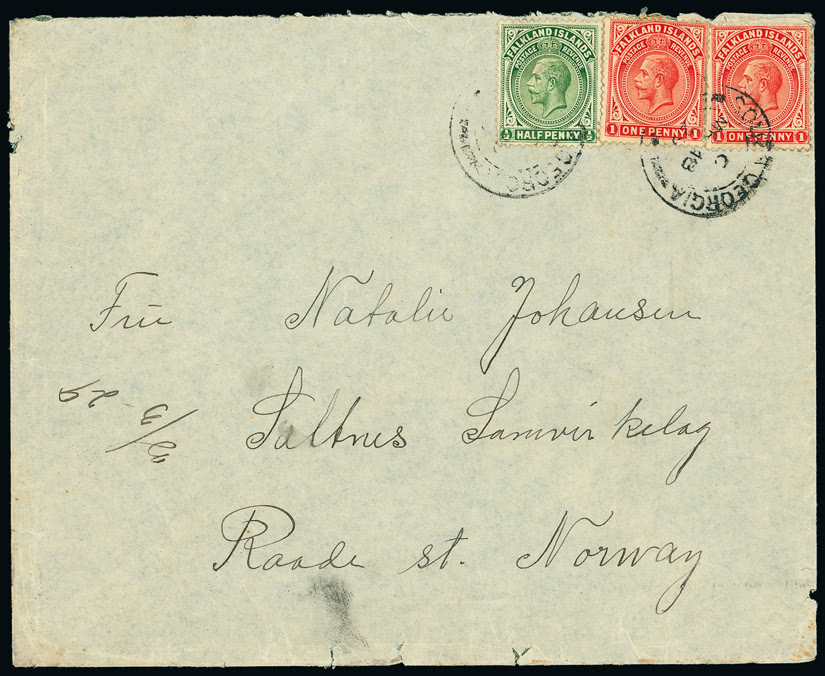 FALKLAND ISLANDS
POSTAGE REVENUE
½ HALFPENNY ½
FALKLAND ISLANDS
POSTAGE REVENUE
1 ONE PENNY 1
FALKLAND ISLANDS
POSTAGE REVENUE
1 ONE PENNY 1
GEORGIA
SOUTH GEORGIA
Frü Natalie Johansen
Saltnes Samvirkelag
Raade st. Norway